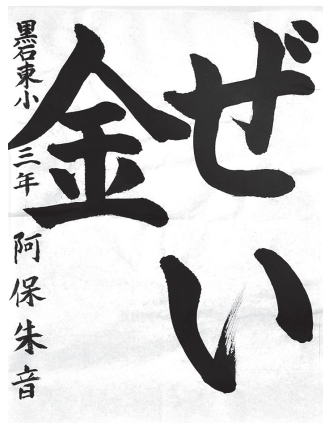 ぜい
金
黒石東小 三年 阿保朱音